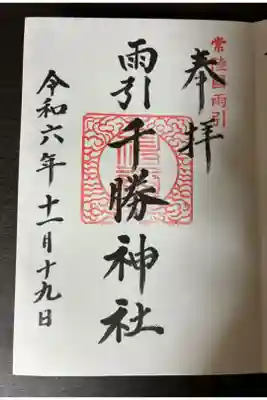 常陸国雨引
奉拝
雨引千勝神社
令和六年十一月十九日